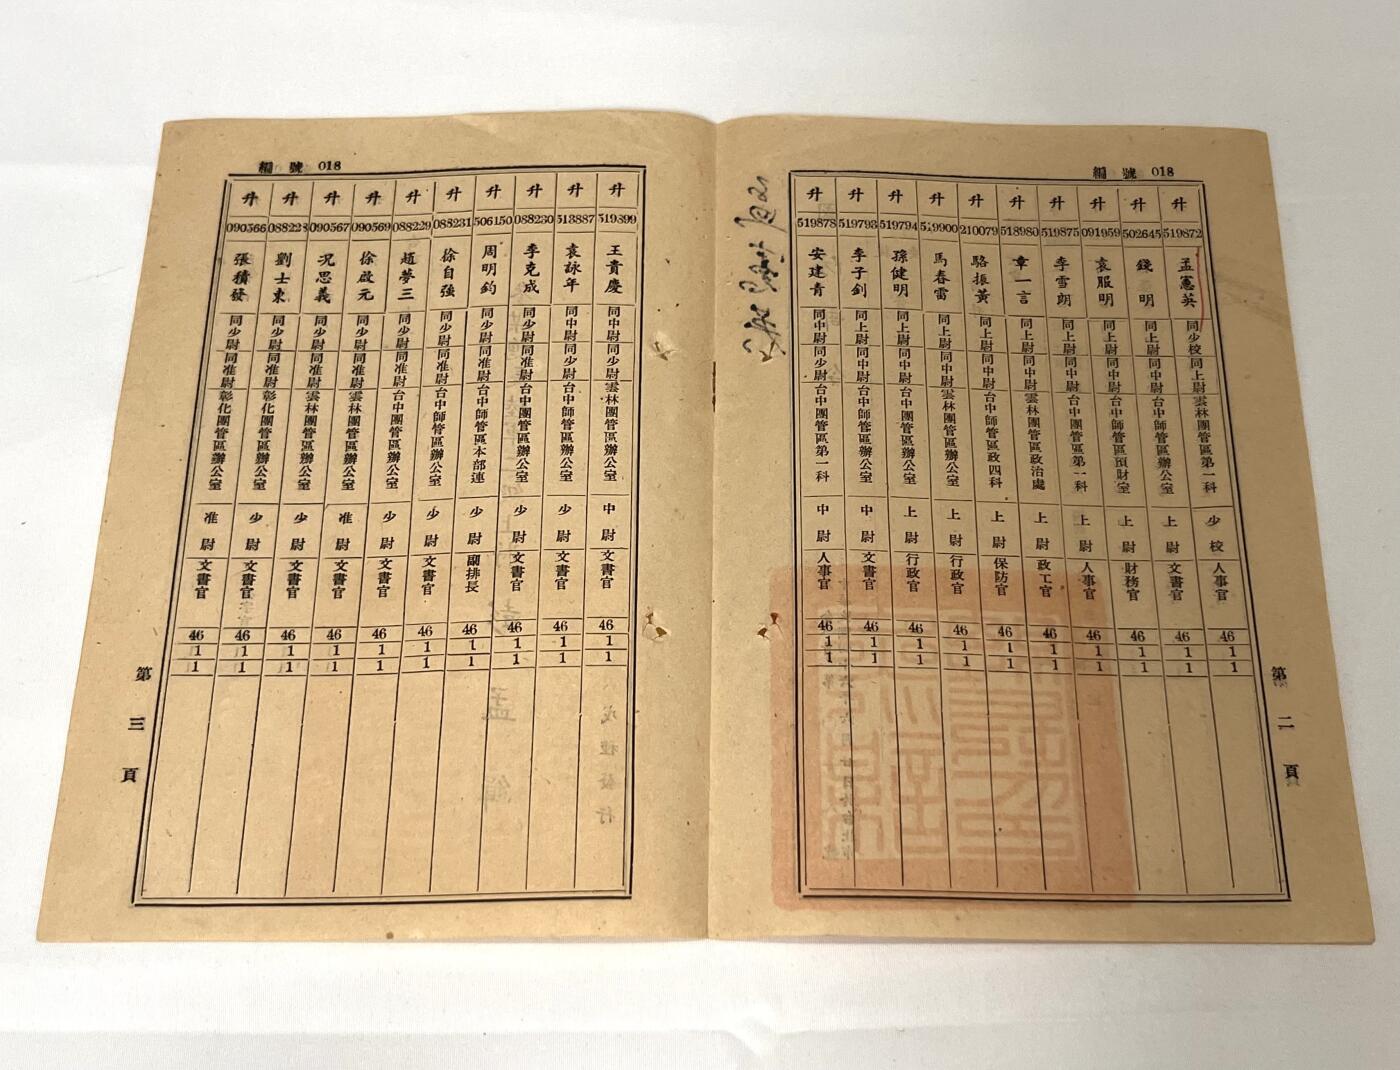 編號 018
升 519872 孟憲英 同少校 同上尉 雲林團管區第一科 少校 人事官 46 1 1
升 502645 錢明 同上尉 同中尉 台中師管區辦公室 上尉 文書官 46 1 1
升 091959 袁服明 同上尉 同中尉 台中師管區預財室 上尉 財務官 46 1 1
升 519875 李雪朗 同上尉 同中尉 台中團管區第一科 上尉 人事官 46 1 1
升 518980 章一言 同上尉 同中尉 雲林團管區政治處 上尉 政工官 46 1 1
升 210079 駱振黃 同上尉 同中尉 台中師管區政四科 上尉 保防官 46 1 1
升 519900 馬春雷 同上尉 同中尉 雲林團管區辦公室 上尉 行政官 46 1 1
升 519794 孫健明 同上尉 同中尉 台中團管區辦公室 上尉 行政官 46 1 1
升 519793 李子釗 同上尉 同中尉 台中師管區辦公室 中尉 文書官 46 1 1
升 519878 安建青 同中尉 同少尉 台中團管區第一科 中尉 人事官 46 1 1
第二頁
編號 018
升 519899 王貴慶 同中尉 同少尉 雲林團管區辦公室 中尉 文書官 46 1 1
升 513887 袁詠年 同中尉 同少尉 台中師管區辦公室 少尉 文書官 46 1 1
升 088230 李克成 同少尉 同准尉 台中團管區辦公室 少尉 文書官 46 1 1
升 506150 周明鈞 同少尉 同准尉 台中師管區本部連 少尉 副排長 46 1 1
升 088231 徐自強 同少尉 同准尉 台中師管區辦公室 少尉 文書官 46 1 1
升 088229 趙夢三 同少尉 同准尉 台中團管區辦公室 少尉 文書官 46 1 1
升 090569 徐啟元 同少尉 同准尉 雲林團管區辦公室 准尉 文書官 46 1 1
升 090567 況思義 同少尉 同准尉 雲林團管區辦公室 少尉 文書官 46 1 1
升 088228 劉士東 同少尉 同准尉 彰化團管區辦公室 少尉 文書官 46 1 1
升 090566 張積發 同少尉 同准尉 彰化團管區辦公室 准尉 文書官 46 1 1
第三頁